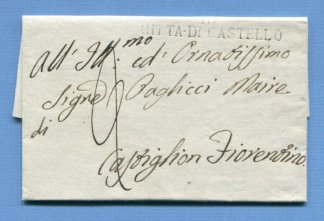 CITTA-DI CASTELLO
All' Ill.mo ed' Ornatissimo
Sigre Paglicci Maire
di
Castiglion Fiorentino